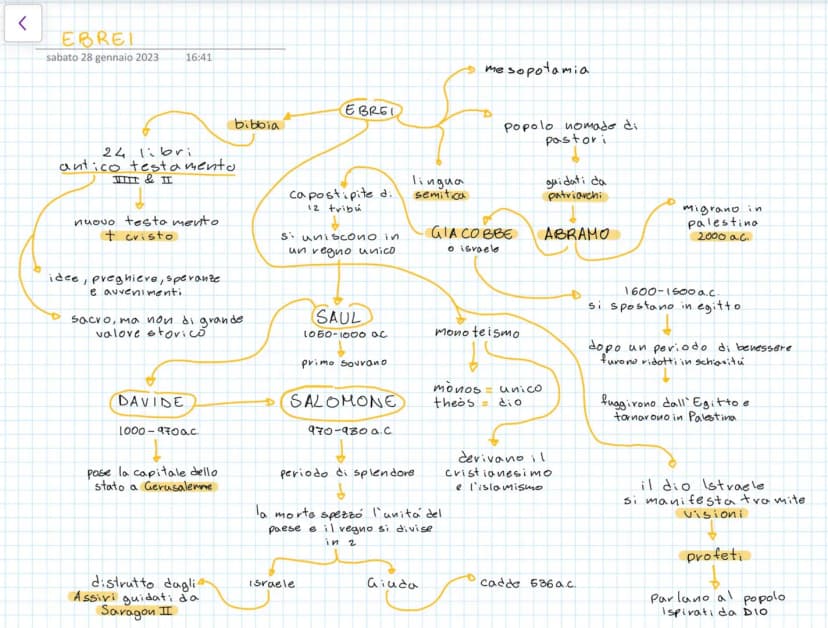 EBREI
sabato 28 gennaio 2023 16:41
EBREI
mesopotamia
bibbia
popolo nomade di
pastori
24 libri
antico testamento
IIII & II
nuovo testamento
† cristo
idee, preghiere, speranze
e avvenimenti
sacro, ma non di grande
valore storico
capostipite di
12 tribú
si uniscono in
un regno unico
lingua
semitica
guidati da
patriarchi
GIACOBBE
o israele
ABRAMO
migrano in
palestina
2000 a.C.
1600-1500 a.C.
si spostano in egitto
dopo un periodo di benessere
furono ridotti in schiavitú
fuggirono dall'Egitto e
tornarono in Palestina
SAUL
1050-1000 a.C
primo sovrano
monoteismo
mònos = unico
theòs = dio
derivano il
cristianesimo
e l'islamismo
DAVIDE
1000-970 a.C
pose la capitale dello
stato a Gerusalemme
SALOMONE
970-930 a.C
periodo di splendore
la morte spezzó l'unitá del
paese e il regno si divise
in 2
israele
distrutto dagli
Assiri guidati da
Saragon II
Giuda
cadde 586 a.C.
il dio Istraele
si manifesta tramite
visioni
profeti
parlano al popolo
ispirati da DIO